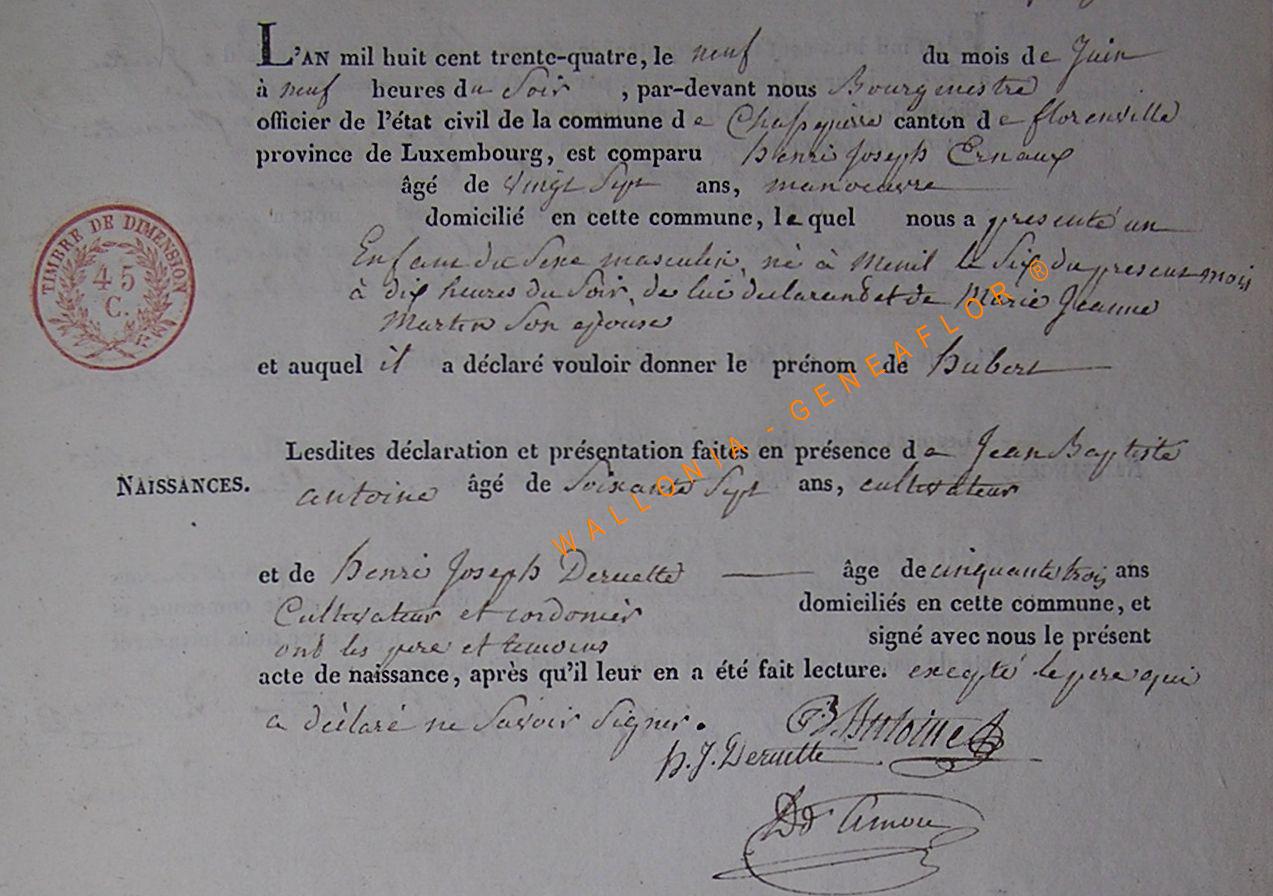 L'AN mil huit cent trente-quatre, le neuf du mois de Juin
à neuf heures du Soir, par-devant nous Bourgmestre
officier de l'état civil de la commune de canton de florenville
province de Luxembourg, est comparu henri joseph Ernoux
âgé de vingt Sept ans, manoeuvre
domicilié en cette commune, lequel nous a presenté un
Enfant du Sexe masculin, né à Menil le Six du present mois
à dix heures du Soir, de lui declarant et de Marie Jeanne
Martin Son epouse
et auquel il a déclaré vouloir donner le prénom de hubert
Lesdites déclaration et présentation faites en présence de Jean Baptiste
NAISSANCES.
antoine âgé de Soixante Sept ans, cultivateur
et de henri Joseph Deruette âge de cinquante trois ans
Cultivateur et cordonier domiciliés en cette commune, et
ont les pere et temoins signé avec nous le présent
acte de naissance, après qu'il leur en a été fait lecture. excepté le pere qui
a déclaré ne Savoir Signer.
J.B. Antoine
h. J. Deruette
TIMBRE DE DIMENSION
45
C.
WALLONIA - GENEAFLOR ®